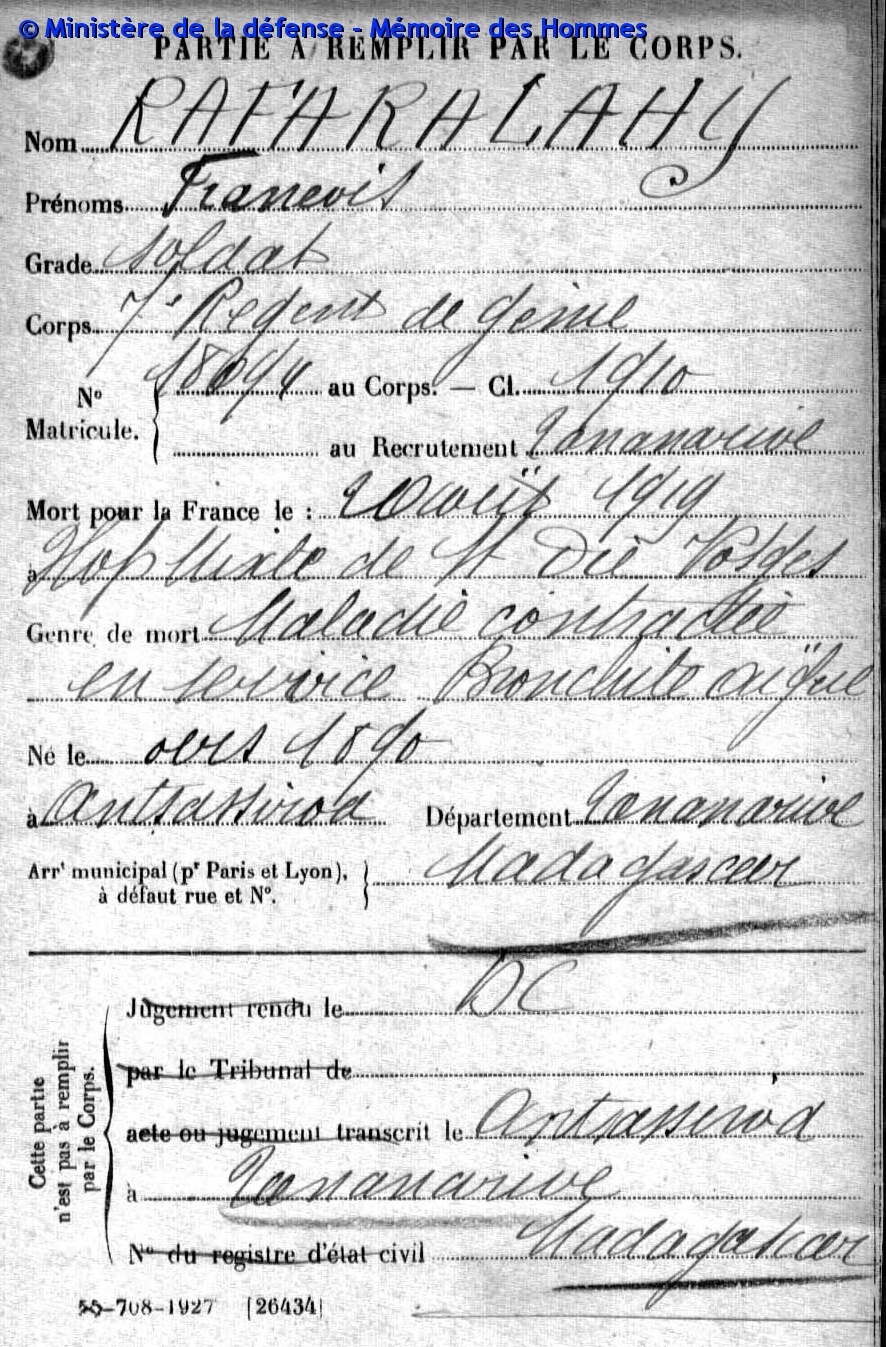 © Ministère de la défense - Mémoire des Hommes
PARTIE A REMPLIR PAR LE CORPS.
Nom RAFARALAHY
Prénoms François
Grade soldat
Corps 7e Regent de génie
No Matricule. 18094 au Corps. — Cl. 1910
au Recrutement Tananarive
Mort pour la France le : 2 Août 1919
à Hop Mixte de St Dié Vosges
Genre de mort Maladie contractée
en service Bronchite aigüe
Né le vers 1890
à Antsassiroa Département Tananarive
Arrt municipal (pr Paris et Lyon), à défaut rue et No. Madagascar
Cette partie n'est pas à remplir par le Corps.
Jugement rendu le DC
par le Tribunal de
acte ou jugement transcrit le Antsassiroa
à Tananarive
No du registre d'état civil Madagascar
-708-1927 [26434]